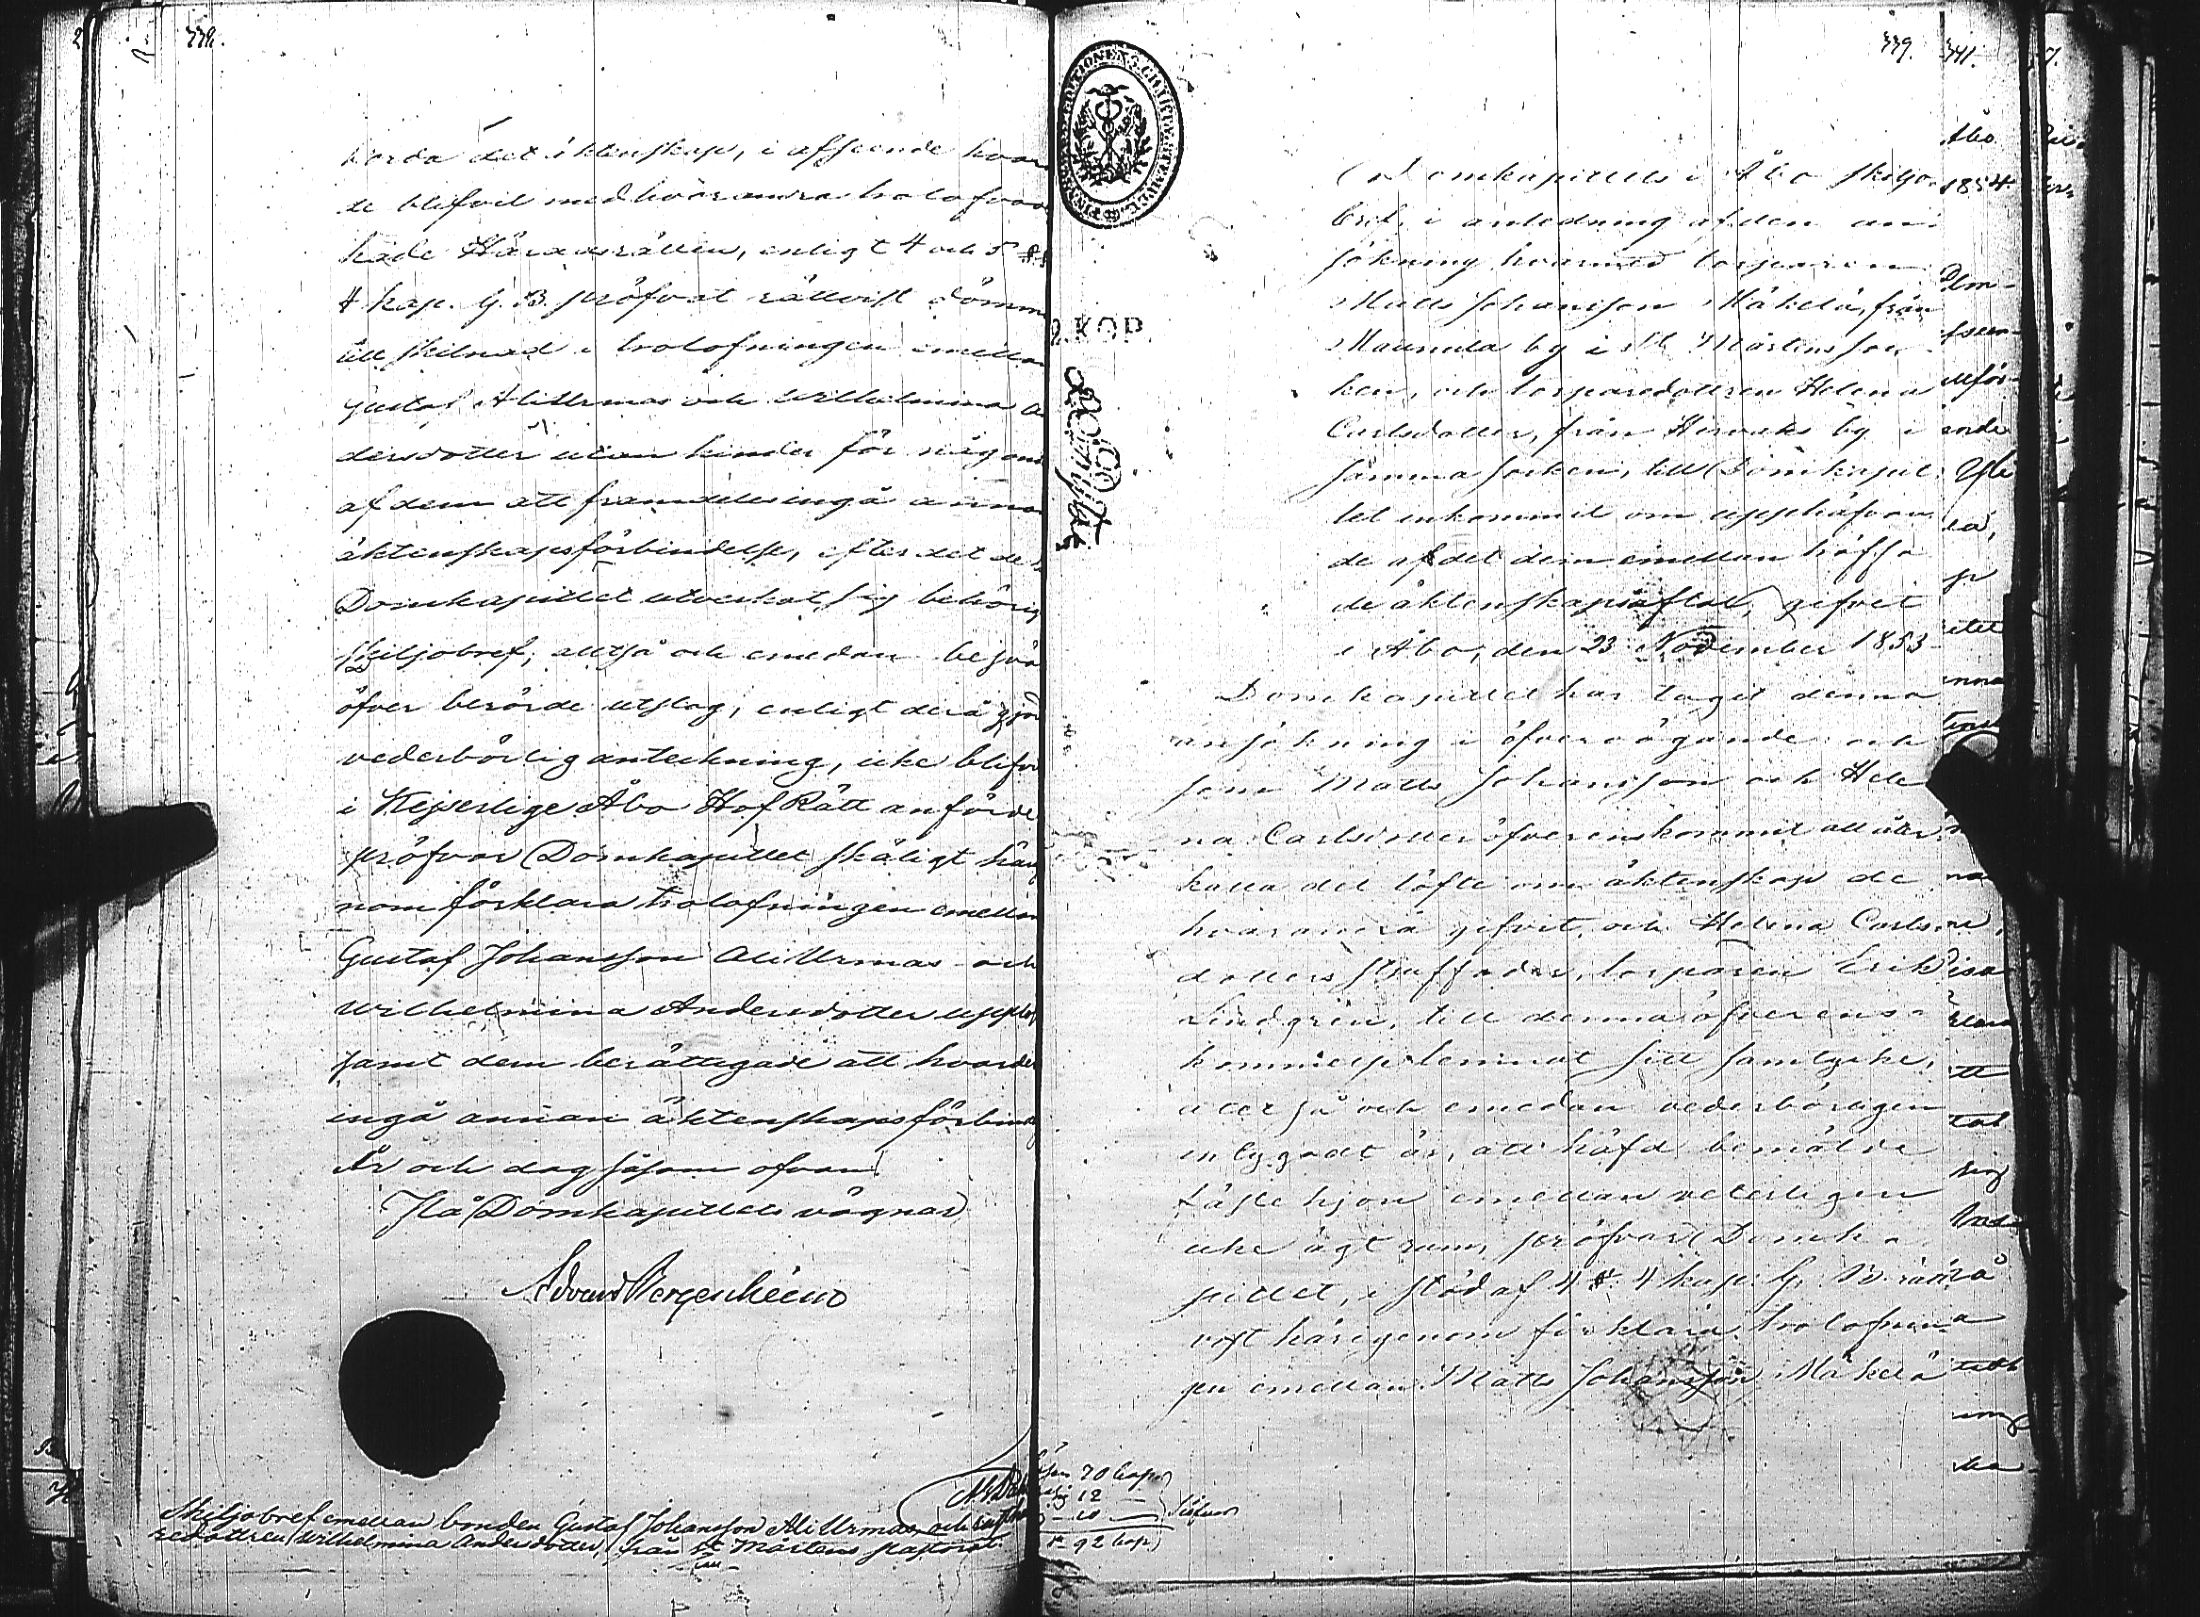 338.
borda det äktenskap, i afseende hvar
de blifvit med hvarandra trolofvade
hade Häradsrätten, enligt 4 och 5 §§
4 kap. G. B. pröfvat rättvist dömma
till skilnad i trolofningen emellan
Gustaf Ali Urmas och Wilhelmina An
dersdotter utan hinder för någon
af dem att framdeles ingå annan
äktenskapsförbindelse, efter det de i
Domkapitlet utverkat sig behörig
skiljobref; alltså och emedan besvär
öfver berörde utslag, enligt derå gjord
vederbörlig anteckning, icke blifvit
i Kejserlige Åbo Hof Rätt anförde
pröfvar Domkapitlet skäligt härige
nom förklara trolofningen emellan
Gustaf Johansson Ali Urmas och
Wilhelmina Andersdotter upplöst
samt dem berättigade att hvardera
ingå annan äktenskapsförbindelse
År och dag såsom ofvan.
På Domkapitlets vägnar
Edvard Bergenheim
Skiljobref emellan bonden Gustaf Johansson Ali Urmas och
redottren Wilhelmina Andersdotter, från St Mårtens pastorat
Lösen 70 kop.
12
10
92 kop.
339.
KOP.
Domkapitlets i Åbo skiljo-
bref, i anledning af den an-
sökning hvarmed torparen
Matts Johansson Mäkelä, från
Maunula by i St Mårtens soc-
ken, och torparedottren Helena
Carlsdotter, från Hirvaks by i
samma socken, till Domkapit-
let inkommit om upphäfvan-
de af det dem emellan träffa-
de äktenskapsaftal; gifvet
i Åbo, den 23 November 1853.
Domkapitlet har tagit denna
ansökning i öfvervägande och
som Matts Johansson och Hele
na Carlsdotter öfverenskommit att åter-
kalla det löfte om äktenskap de
hvarandra gifvit, och Helena Carls-
dotters stjuffader, torparen Erik
Lindgrén, till denna öfverens-
kommelse lemnat sitt samtycke,
alltså och emedan vederbörligen
intygadt är, att häfd bemälde
fästehjon emellan veterligen
icke ägt rum, pröfvar Domka-
pitlet, i stöd af 4 § 4 kap. G. B. rätt
vist härigenom förklara trolofnin-
gen emellan Matts Johansson Mäkelä
341.
Åbo
1854
Dom-